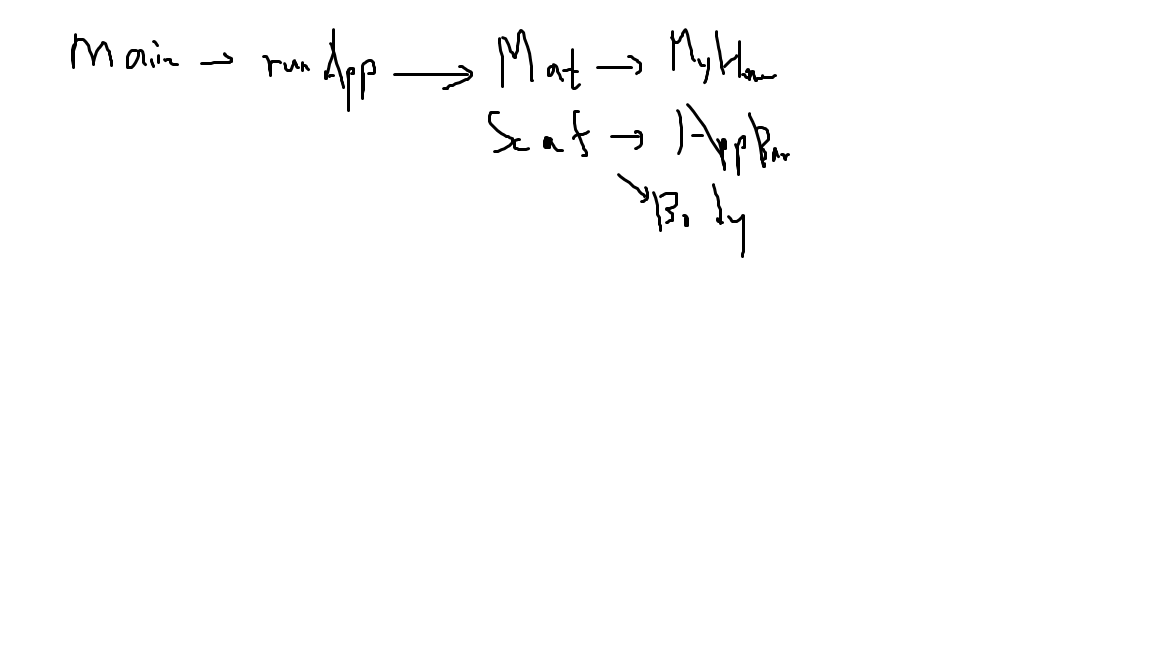 Main → runApp → Mat → MyHom
Scaf → AppBar
→ Body